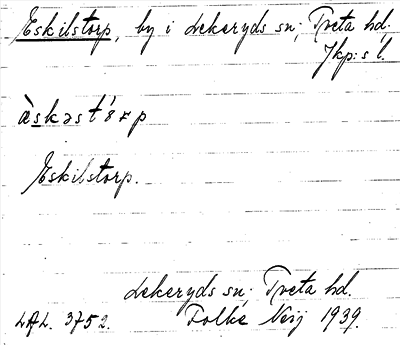 Eskilstorp, by i Lekeryds sn; Tveta hd.
Jkp:s l.
àskəst'órp
Eskilstorp.
Lekeryds sn; Tveta hd.
LAL. 3752. Folke Neij 1939.